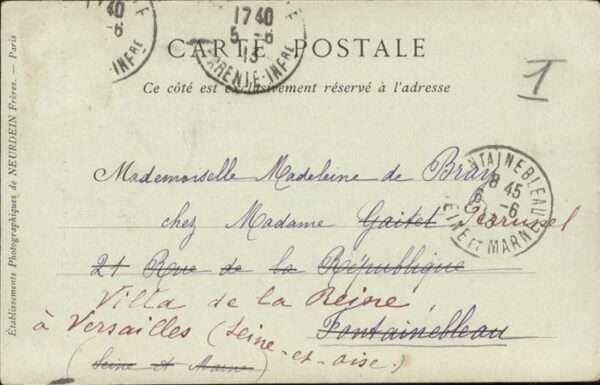 17 40
5 -6
13
RENTE-INFRE
40
-6
INFRE
CARTE POSTALE
Ce côté est exclusivement réservé à l'adresse
1
Mademoiselle Madeleine de Bray
chez Madame Gaitet
21 Rue de la République
Villa de la Reine
à Versailles (Seine-et-Oise) Fontainebleau
(Seine et Marne)
NTAINEBLEAU
8 45
6 -6
EINE ET MARNE
Établissements Photographiques de NEURDEIN Frères. — Paris